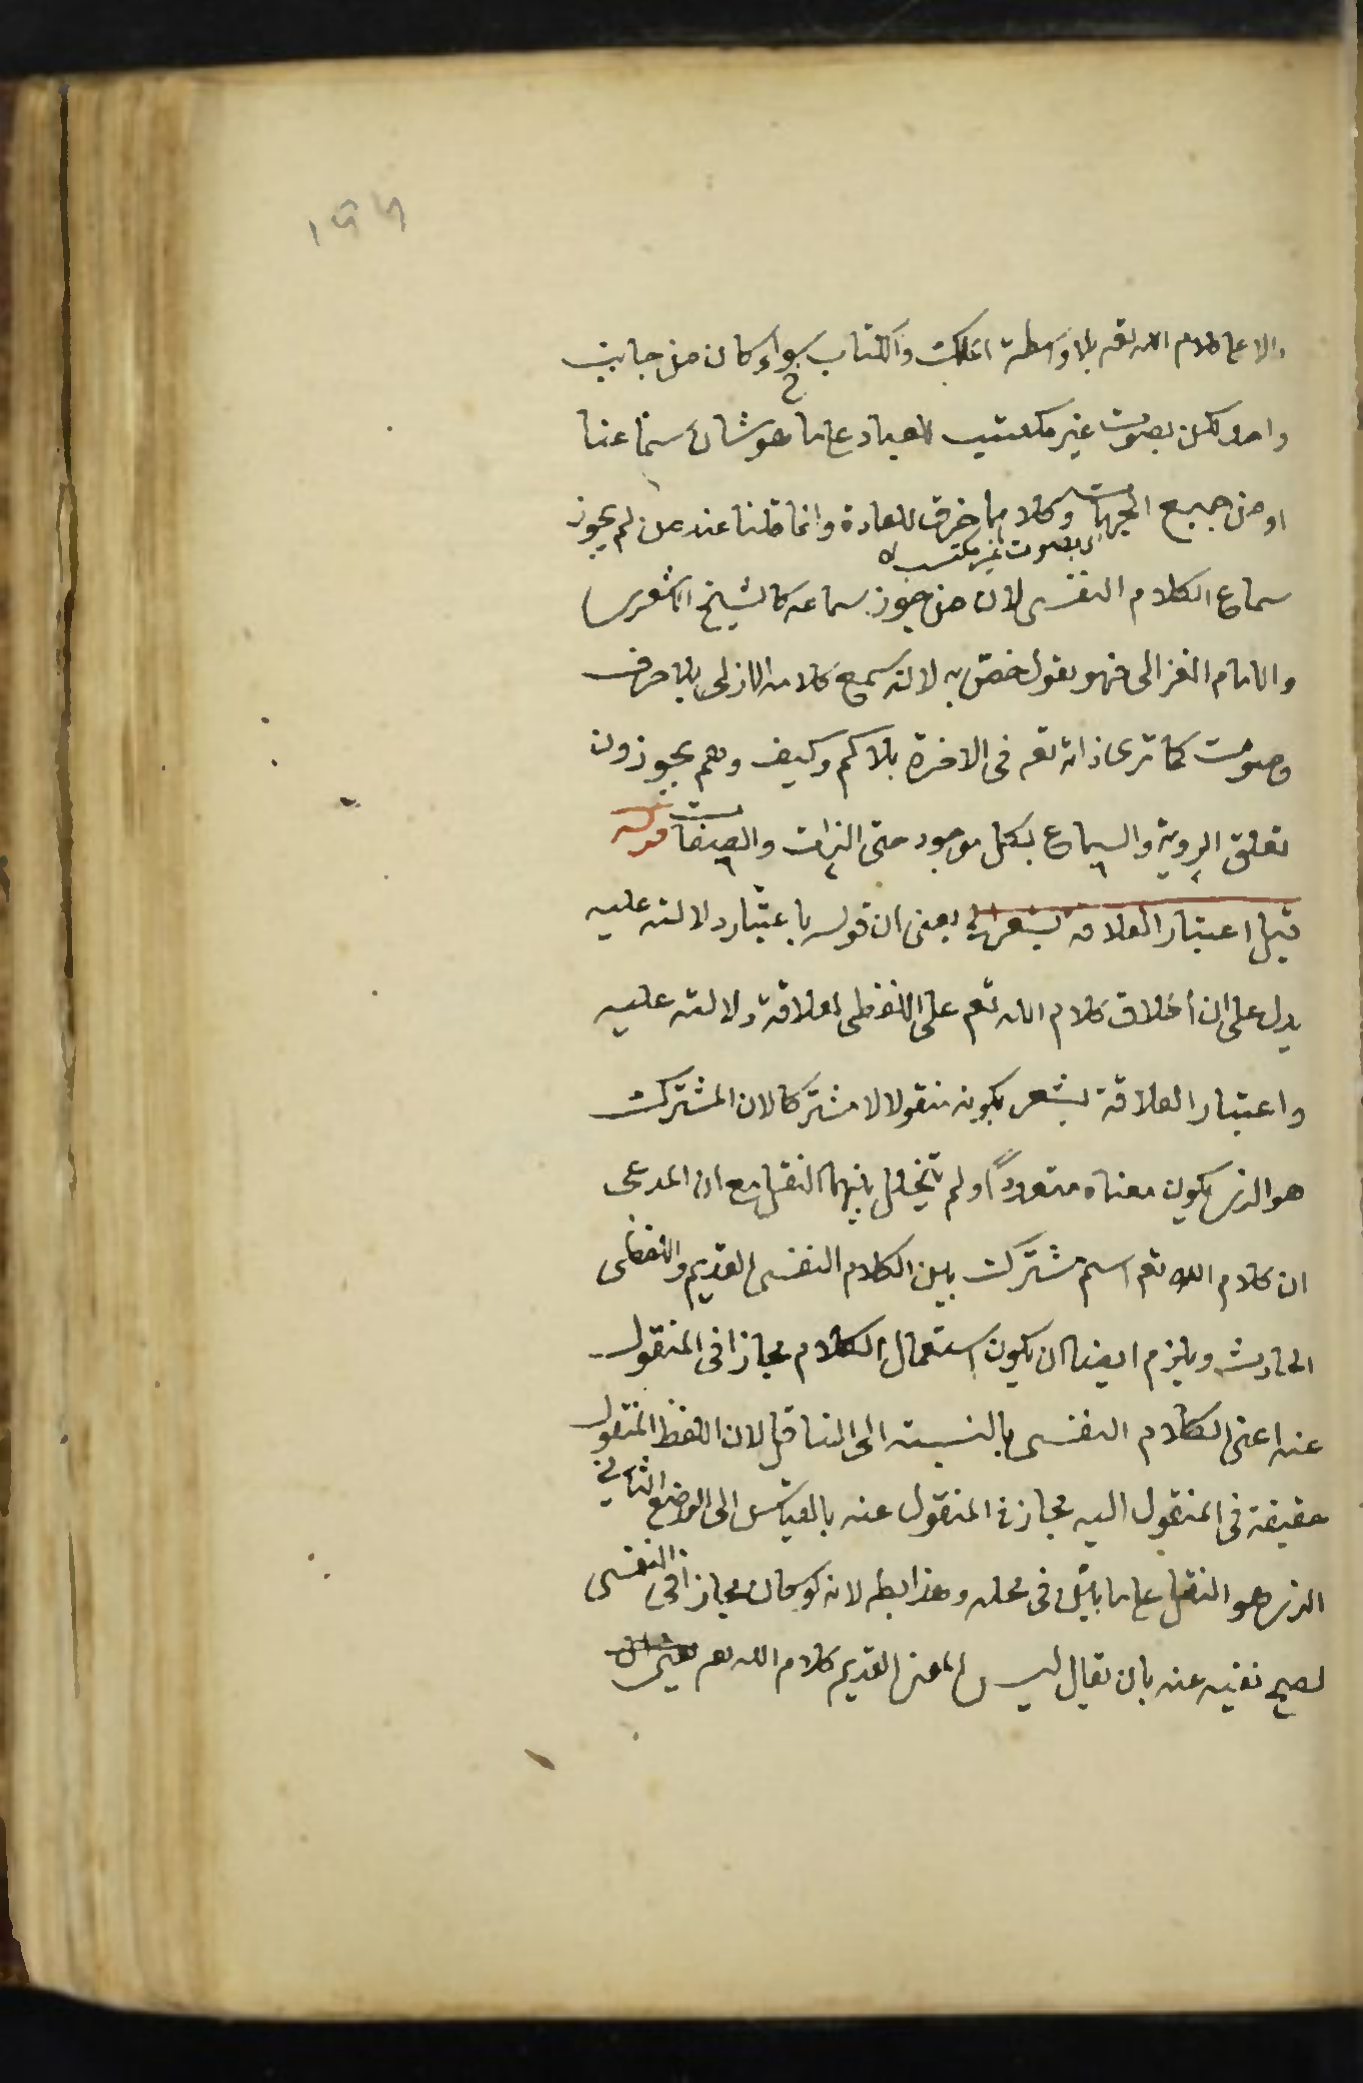 ١٩٩
والا على كلام الله تعه بلا واسطة الملك والكتاب سواء كان من جانب
واحد لكن بصوت غير مكتسب للعباد على ما هو شان سماعنا
او من جميع الجهات وكلاهما خرق للعادة وانما قلنا عند من لم يجوز
بصوت غير مكتسب
سماع الكلام النفسى لان من جوز سماعه كالشيخ الاشعرى
والامام الغزالى فهو يقول خص به لانه سمع كلامه الازلى بلا حرف
وصوت كما ترى ذاته تعه فى الاخرة بلا كم وكيف وهم يجوزون
تعلق الروية والسماع بكل موجود حتى الذات والصفات قوله
قيل اعتبار العلاقة يشعر الخ يعنى ان قوله باعتبار دلالته عليه
يدل على ان اطلاق كلام الله تعم على اللفظى لعلاقة دلالته عليه
واعتبار العلاقة يشعر بكونه منقولا لا مشتركا لان المشترك
هو الذى يكون معناه متعددا ولم يتخلل بينهما النقل مع ان المدعى
ان كلام الله تعم اسم مشترك بين الكلام النفسى القديم واللفظى
الحادث ويلزم ايضا ان يكون استعمال الكلام مجازا فى المنقول
عنه اعنى الكلام النفسى بالنسبة الى الناقل لان اللفظ المنقول
حقيقة فى المنقول اليه مجاز فى المنقول عنه بالقياس الى الوضع الثانى
الذى هو النقل على ما بين فى محله وهذا بط لانه لو كان مجازا فى النفسى
لصح نفيه عنه بان يقال ليس المعنى القديم كلام الله تعم